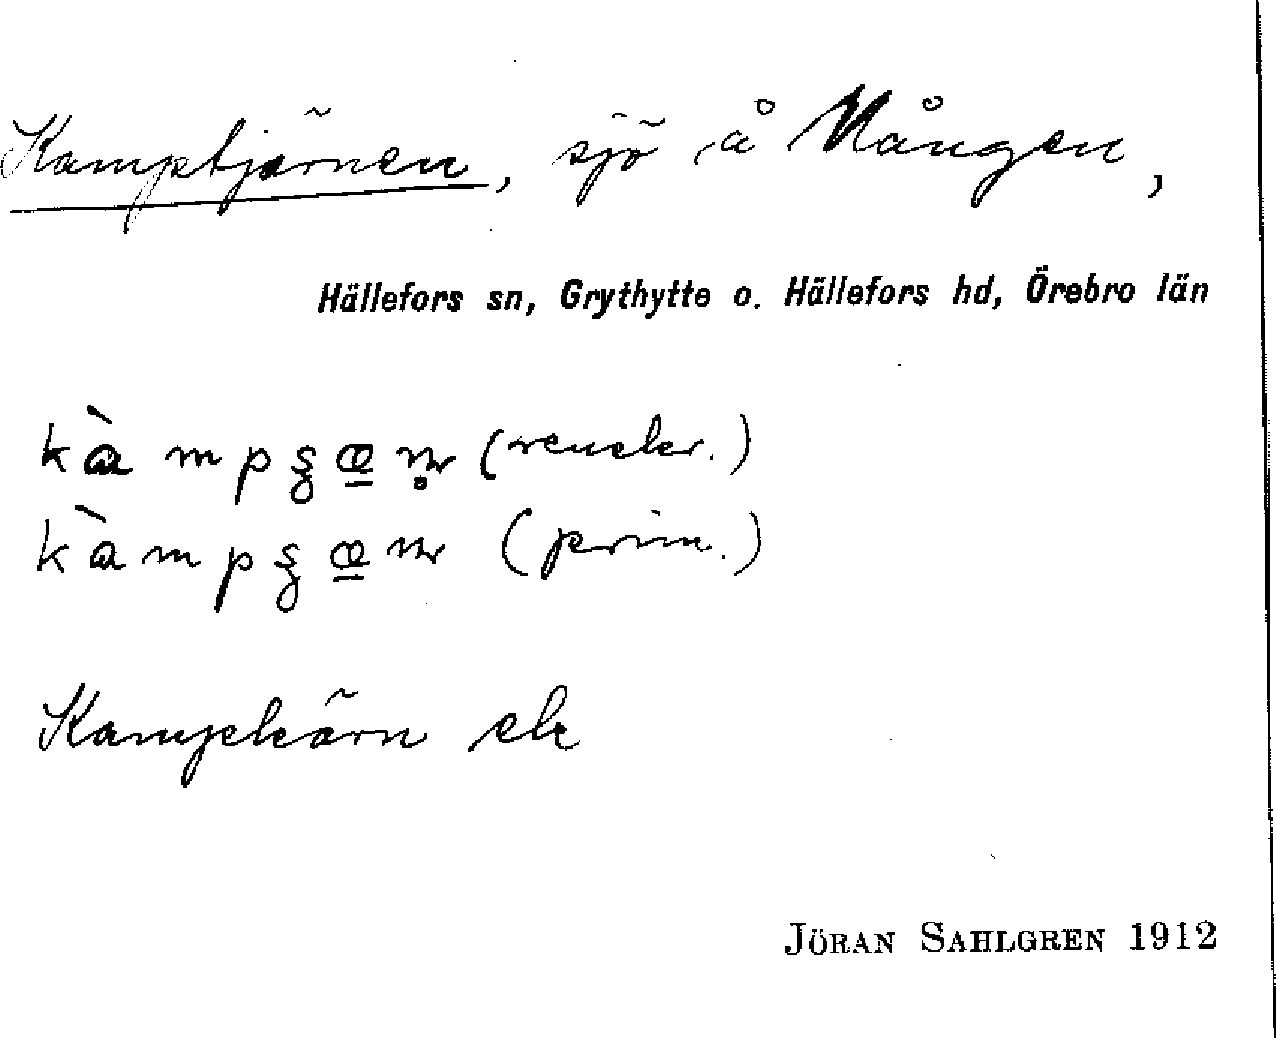 Kamptjärnen, sjö å Mången,
Hällefors sn, Grythytte o. Hällefors hd, Örebro län
(prim.)
Kampkärn ek
JÖRAN SAHLGREN 1912